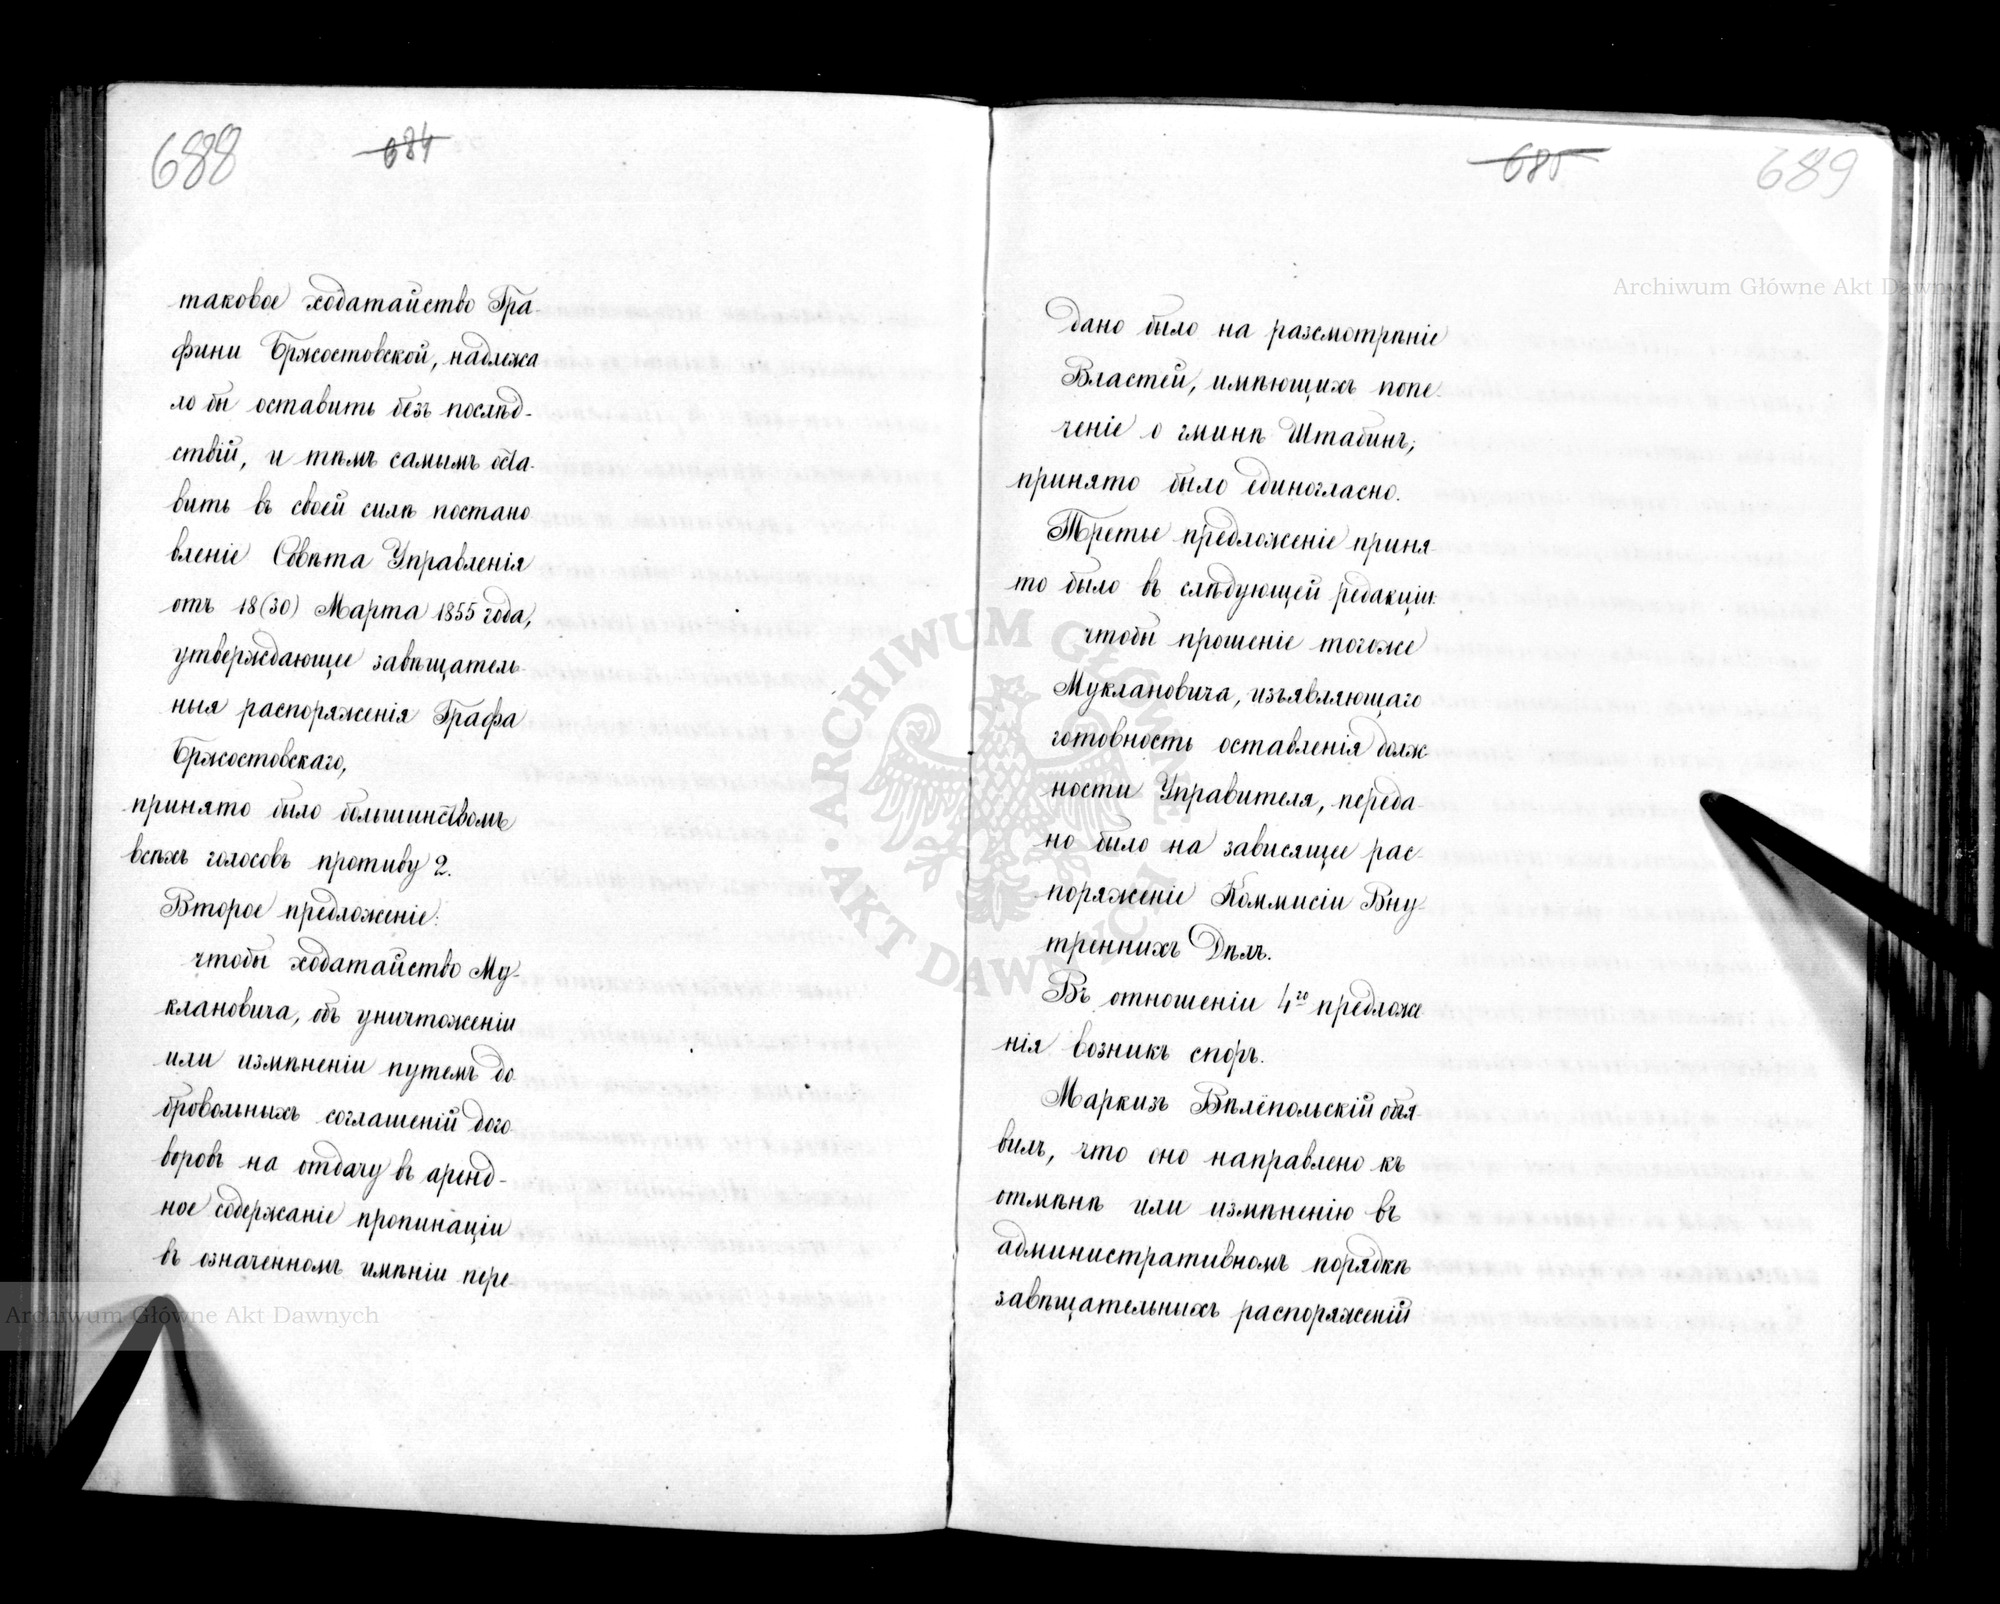 688
684
таковое ходатайство Гра-
фини Бржостовской, надлежа
ло бы оставить безъ послѣд-
ствій, и тѣмъ самымъ оста-
вить въ своей силѣ постано
вленіе Совѣта Управленія
отъ 18 (30) Марта 1855 года,
утверждающее завѣщатель-
ныя распоряженія Графа
Бржостовскаго,
принято было большинствомъ
всѣхъ голосовъ противу 2.
Второе предложеніе:
чтобы ходатайство Му-
клановича, объ уничтоженіи
или измѣненіи путемъ до
бровольныхъ соглашеній дого
воровъ на отдачу въ аренд-
ное содержаніе пропинаціи
въ означенномъ имѣніи пере
685
689
дано было на разсмотрѣніе
Властей, имѣющихъ попе-
ченіе о гминѣ Штабинъ;
принято было единогласно.
Третье предложеніе приня-
то было въ слѣдующей редакціи:
чтобы прошеніе тогоже
Муклановича, изъявляющаго
готовность оставленія долж-
ности Управителя, переда-
но было на зависящее рас-
поряженіе Коммисіи Вну-
треннихъ Дѣлъ.
Въ отношеніи 4го предложе
нія возникъ споръ.
Маркизъ Вѣлёпольскій объя-
вилъ, что оно направлено къ
отмѣнѣ или измѣненію въ
административномъ порядкѣ
завѣщательныхъ распоряженій
Archiwum Główne Akt Dawnych
Archiwum Główne Akt Dawnych
ARCHIWUM GŁÓWNE AKT DAWNYCH